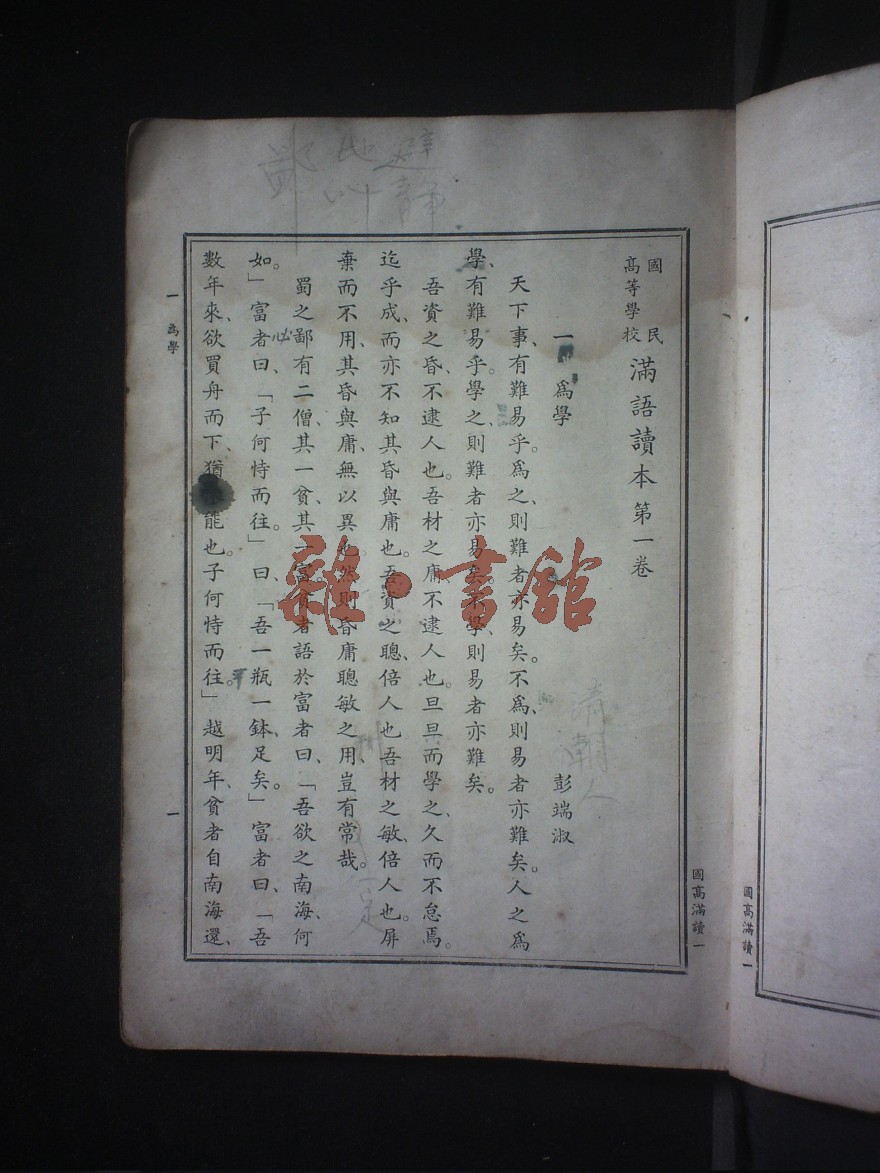 國民高等學校 滿語讀本 第一卷
一 爲學
彭端淑
天下事、有難易乎。爲之、則難者亦易矣。不爲、則易者亦難矣。人之爲
學、有難易乎。學之、則難者亦易矣。不學、則易者亦難矣。
吾資之昏、不逮人也。吾材之庸不逮人也。旦旦而學之、久而不怠焉。
迄乎成、而亦不知其昏與庸也。吾資之聰、倍人也吾材之敏、倍人也。屏
棄而不用、其昏與庸、無以異也。然則昏庸聰敏之用、豈有常哉。
蜀之鄙有二僧、其一貧、其一富。貧者語於富者曰、「吾欲之南海、何
如。」富者曰、「子何恃而往。」曰、「吾一瓶一鉢、足矣。」富者曰、「吾
數年來、欲買舟而下、猶能也。子何恃而往。」越明年、貧者自南海還、
一 爲學
一
國高滿讀一
國高滿讀一
鄙 地 避
靜
必
清朝人
雜·書館